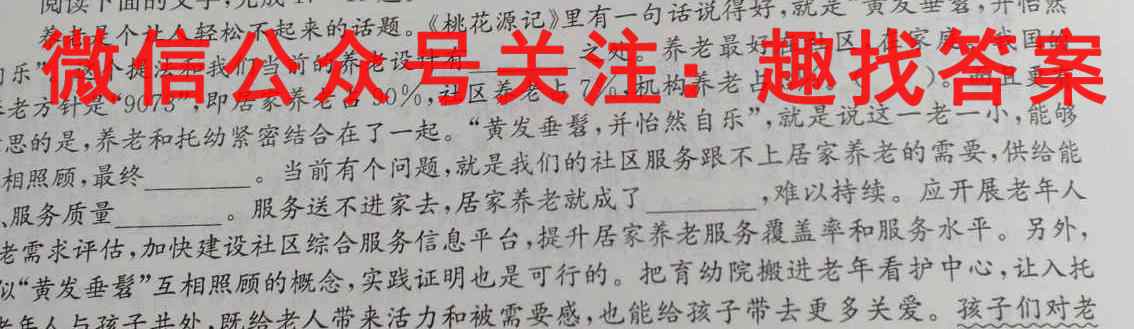 阅读下面的文字,完成
养老是个让人轻松不起来的话题。《桃花源记》里有一句话说得好,就是“黄发垂髫,并怡然
自乐”
之处。养老最好
老方针是“9073”,即居家养老占90%,社区养老占7%,机构养老占
思的是,养老和托幼紧密结合在了一起。“黄发垂髫,并怡然自乐”,就是说这一老一小,能够
相照顾,最终________。当前有个问题,就是我们的社区服务跟不上居家养老的需要,供给能
、服务质量________。服务送不进家去,居家养老就成了________,难以持续。应开展老年人
老需求评估,加快建设社区综合服务信息平台,提升居家养老服务覆盖率和服务水平。另外,
似“黄发垂髫”互相照顾的概念,实践证明也是可行的。把育幼院搬进老年看护中心,让入托
老年人与孩子共处,既给老人带来活力和被需要感,也能给孩子带去更多关爱。孩子们对老
微信公众号关注:趣找答案